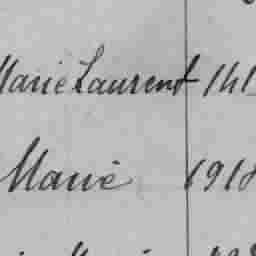 Marie Laurent 141
Marie 1918